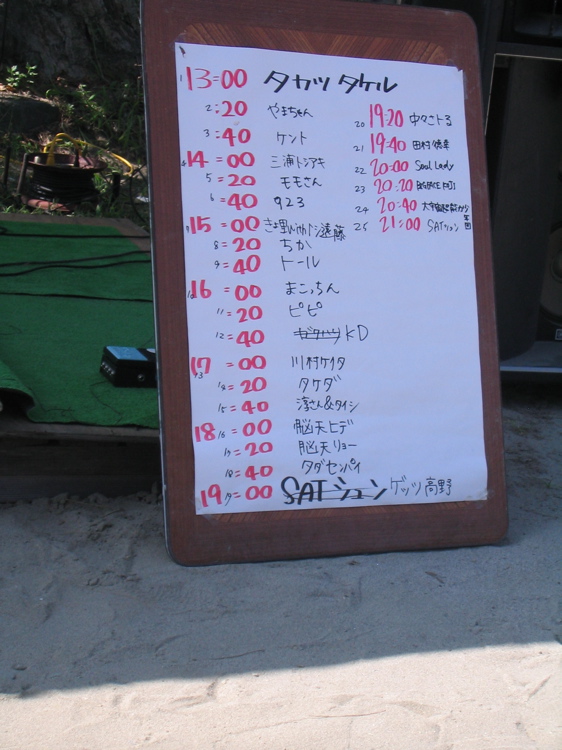 1 13=00 タカツ タケル
2 :20 やまちゃん
3 :40 ケント
4 14=00 三浦トシアキ
5 =20 モモさん
6 =40 923
7 15=00 遠藤
8 =20 ちか
9 =40 トール
10 16=00 まこっちん
11 =20 ピピ
12 =40 KD
13 17=00 川村ケイタ
14 =20 タケダ
15 =40 淳さん&タイシ
16 18=00 脳天ヒデ
17 =20 脳天リョー
18 =40 タダセンパイ
19 19=00 SATシュン ゲッツ高野
20 19=20 中々さとる
21 19=40 田村
22 20=00 Soul Lady
23 20=20
24 20=40
25 21=00 SATシュン